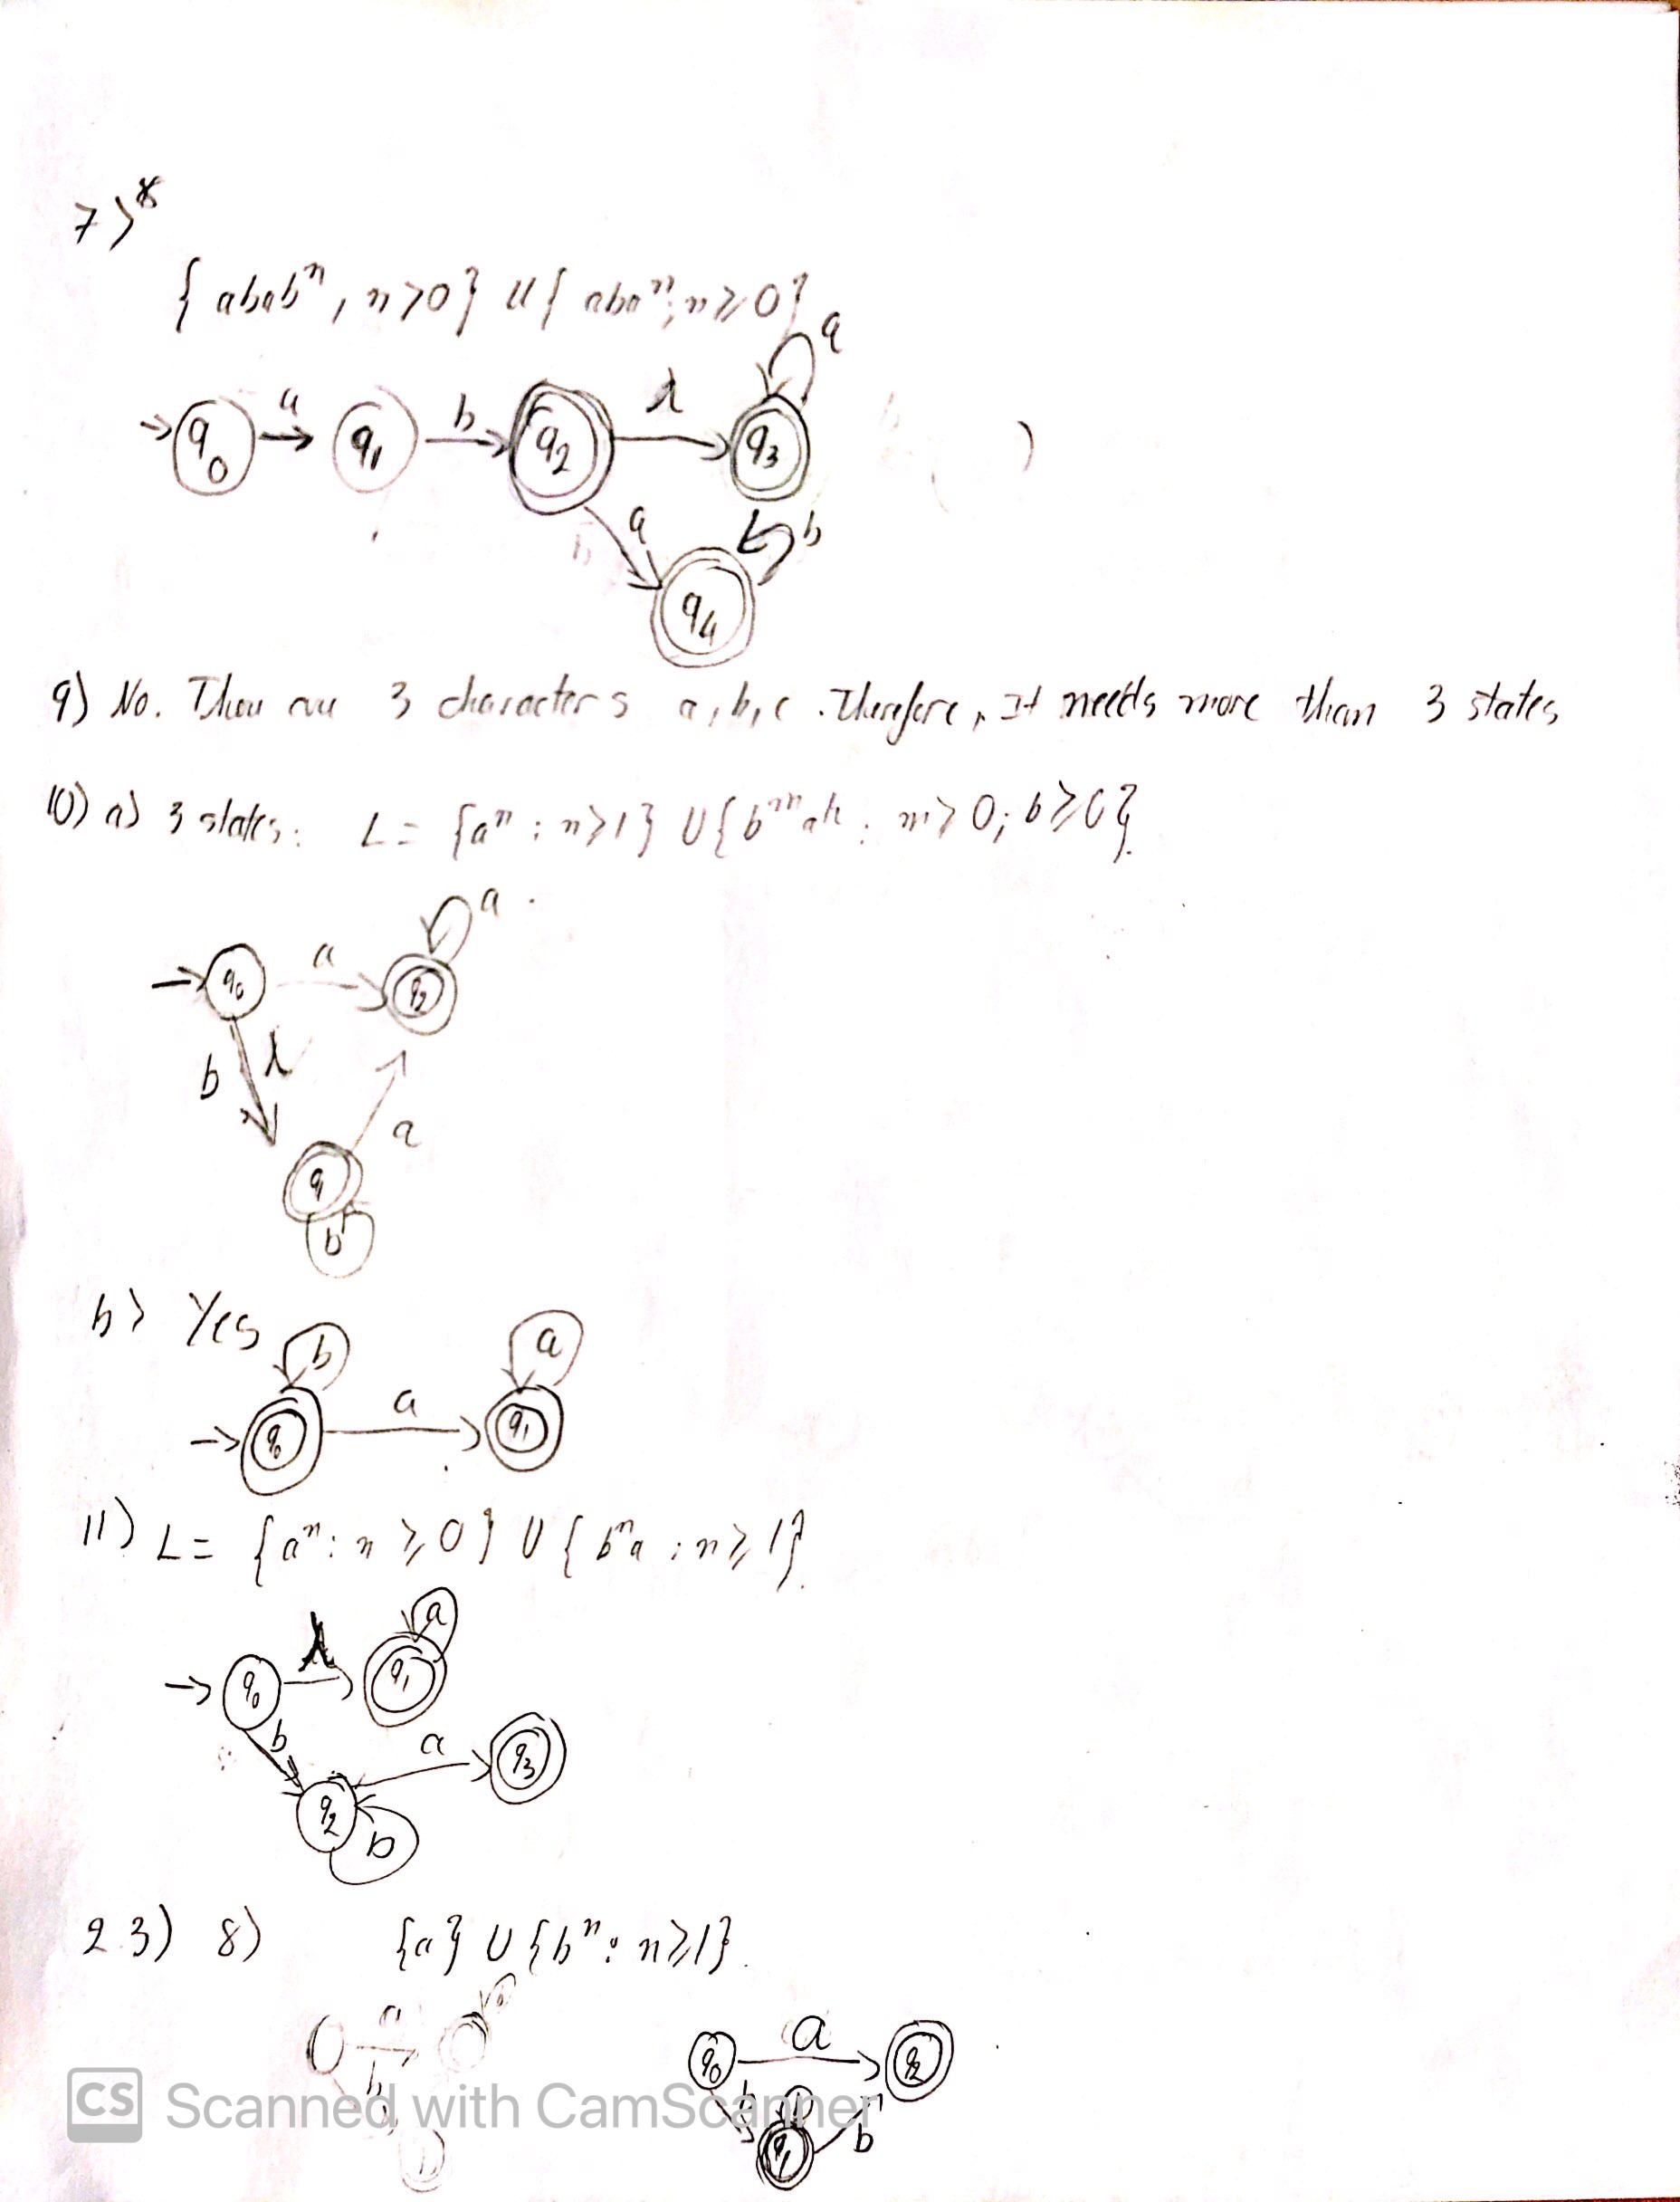 7)
{ abab^n, n>0} U { aba^n; n≥0}
a
a b λ
q0 q1 q2 q3
a b
q4
9) No. There are 3 characters a,b,c. Therefore, It needs more than 3 states
10) a) 3 states: L = {a^n : n≥1} U {b^m a^k : m≥0; b≥0}
a
a
q0 q2
b λ
a
q1
b
b) Yes
b a
a
q0 q1
11) L = {a^n : n≥0} U {b^n a : n≥1}
a
λ
q0 q1
b a
q3
q2
b
2.3) 8) {a} U {b^n : n≥1}
a a
q0 q2
b b
b
q1
CS Scanned with CamScanner